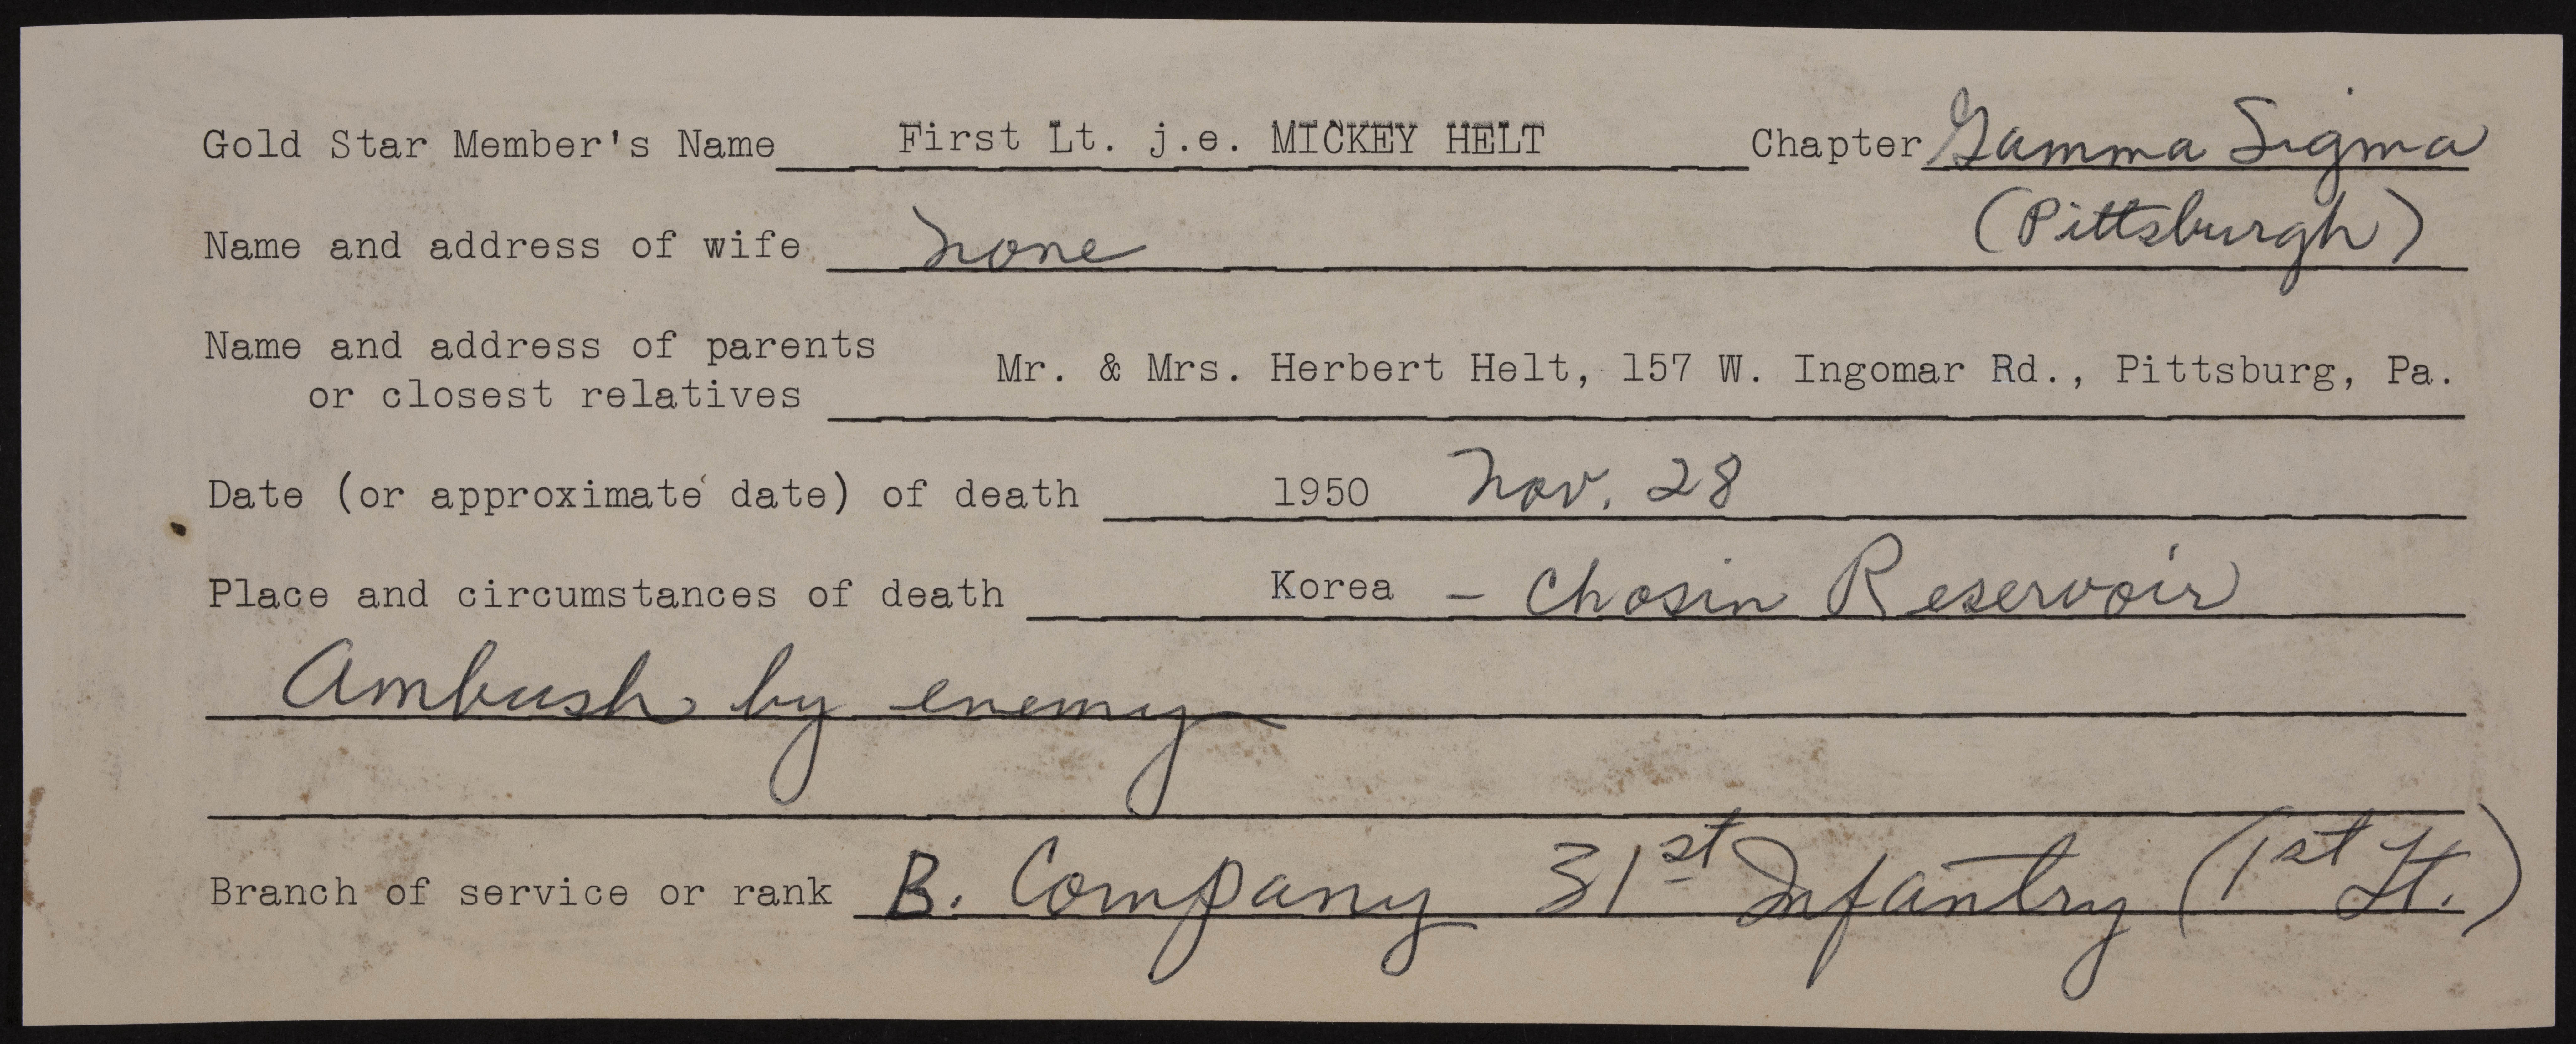 Gold Star Member's Name First Lt. j.e. MICKEY HELT Chapter Gamma Sigma
(Pittsburgh)
Name and address of wife none
Name and address of parents
or closest relatives Mr. & Mrs. Herbert Helt, 157 W. Ingomar Rd., Pittsburg, Pa.
Date (or approximate date) of death 1950 Nov. 28
Place and circumstances of death Korea - Chosin Reservoir
Ambush by enemy
Branch of service or rank B. Company 31st Infantry (1st Lt.)